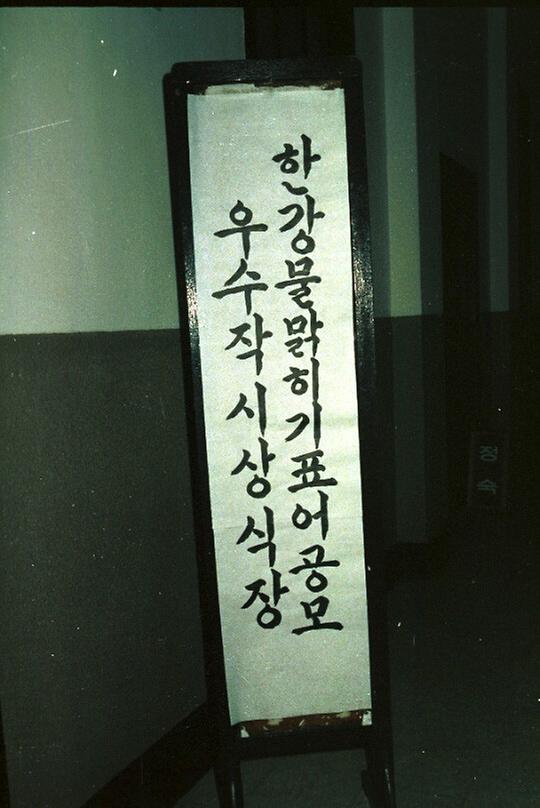 한강물맑히기표어공모
우수작시상식장
정숙